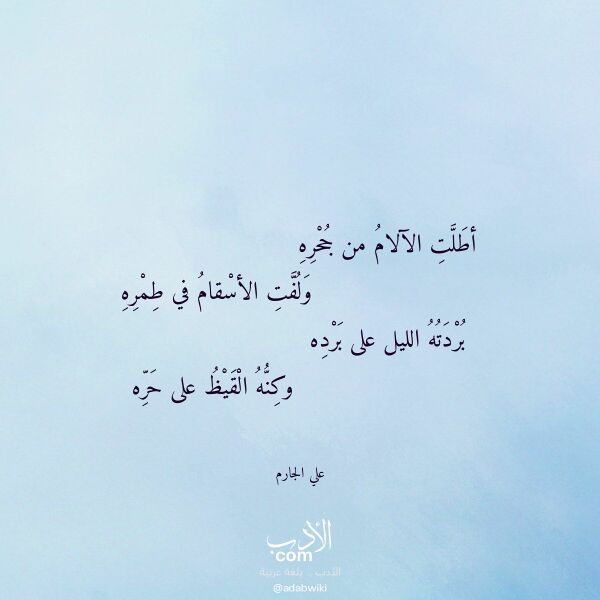 أطَلَّتِ الآلامُ من جُحْرِهِ
وَلُفَّتِ الأسْقامُ في طِمْرِهِ
بُرْدَتُهُ الليل على بَرْدِه
وكِنُّهُ الْقَيْظُ على حَرِّه
علي الجارم
الأدب
com
الأدب .. بلغة عربية
@adabwiki